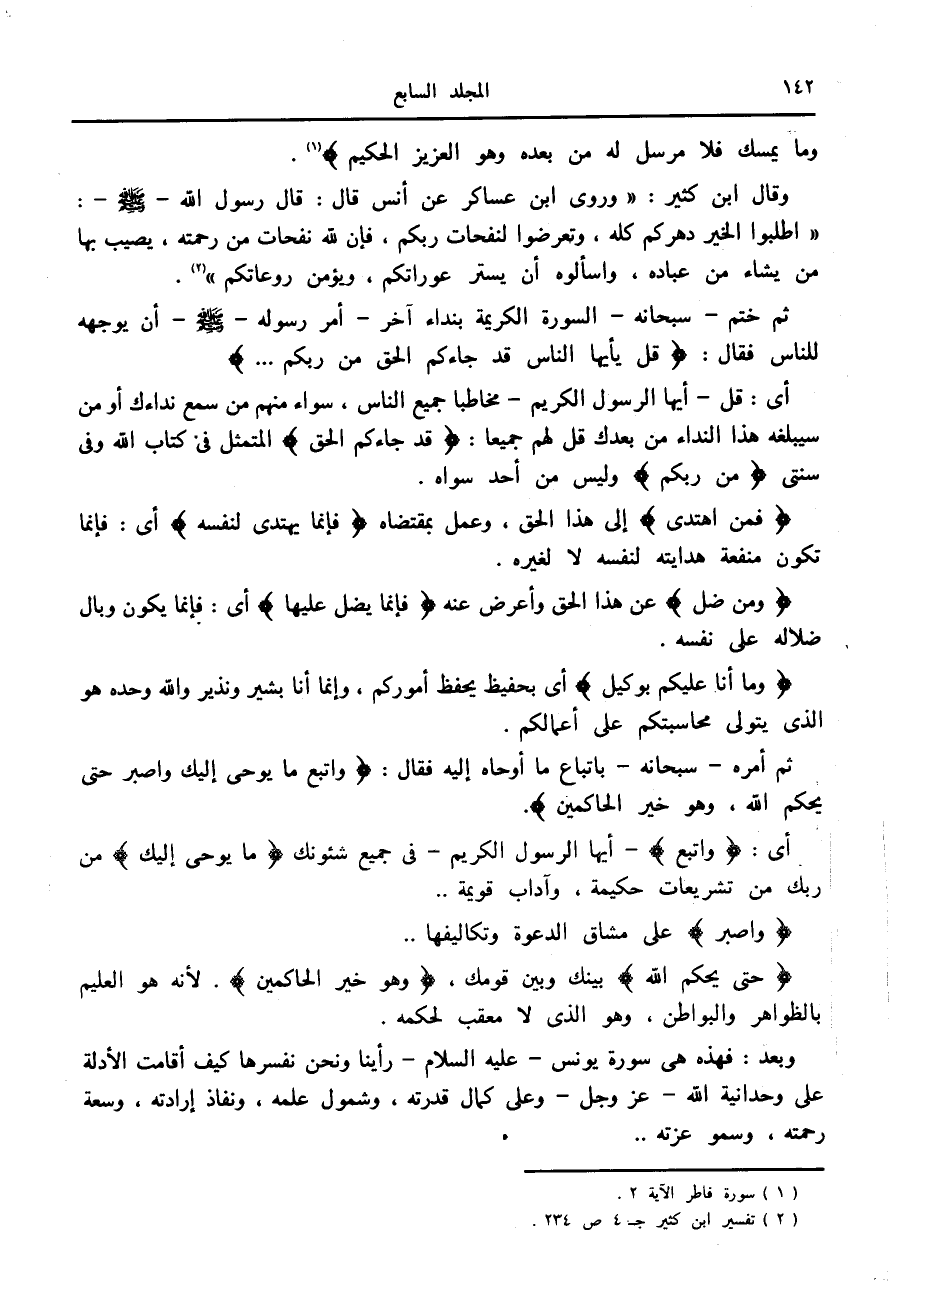 ١٤٢ المجلد السابع
وما يمسك فلا مرسل له من بعده وهو العزيز الحكيم ﴾(١) .
وقال ابن كثير : « وروى ابن عساكر عن أنس قال : قال رسول الله – ﷺ – :
« اطلبوا الخير دهركم كله ، وتعرضوا لنفحات ربكم ، فإن لله نفحات من رحمته ، يصيب بها
من يشاء من عباده ، واسألوه أن يستر عوراتكم ، ويؤمن روعاتكم »(٢) .
ثم ختم – سبحانه – السورة الكريمة بنداء آخر – أمر رسوله – ﷺ – أن يوجهه
للناس فقال : ﴿ قل يأيها الناس قد جاءكم الحق من ربكم ... ﴾
أى : قل – أيها الرسول الكريم – مخاطبا جميع الناس ، سواء منهم من سمع نداءك أو من
سيبلغه هذا النداء من بعدك قل لهم جميعا : ﴿ قد جاءكم الحق ﴾ المتمثل فى كتاب الله وفى
سنتى ﴿ من ربكم ﴾ وليس من أحد سواه .
﴿ فمن اهتدى ﴾ إلى هذا الحق ، وعمل بمقتضاه ﴿ فإنما يهتدى لنفسه ﴾ أى : فإنما
تكون منفعة هدايته لنفسه لا لغيره .
﴿ ومن ضل ﴾ عن هذا الحق وأعرض عنه ﴿ فإنما يضل عليها ﴾ أى : فإنما يكون وبال
ضلاله على نفسه .
﴿ وما أنا عليكم بوكيل ﴾ أى بحفيظ يحفظ أموركم ، وإنما أنا بشير ونذير والله وحده هو
الذى يتولى محاسبتكم على أعمالكم .
ثم أمره – سبحانه – باتباع ما أوحاه إليه فقال : ﴿ واتبع ما يوحى إليك واصبر حتى
يحكم الله ، وهو خير الحاكمين ﴾.
أى : ﴿ واتبع ﴾ – أيها الرسول الكريم – فى جميع شئونك ﴿ ما يوحى إليك ﴾ من
ربك من تشريعات حكيمة ، وآداب قويمة ..
﴿ واصبر ﴾ على مشاق الدعوة وتكاليفها ..
﴿ حتى يحكم الله ﴾ بينك وبين قومك ، ﴿ وهو خير الحاكمين ﴾ . لأنه هو العليم
بالظواهر والبواطن ، وهو الذى لا معقب لحكمه .
وبعد : فهذه هى سورة يونس – عليه السلام – رأينا ونحن نفسرها كيف أقامت الأدلة
على وحدانية الله – عز وجل – وعلى كمال قدرته ، وشمول علمه ، ونفاذ إرادته ، وسعة
رحمته ، وسمو عزته ..
( ١ ) سورة فاطر الآية ٢ .
( ٢ ) تفسير ابن كثير جـ ٤ ص ٢٣٤ .